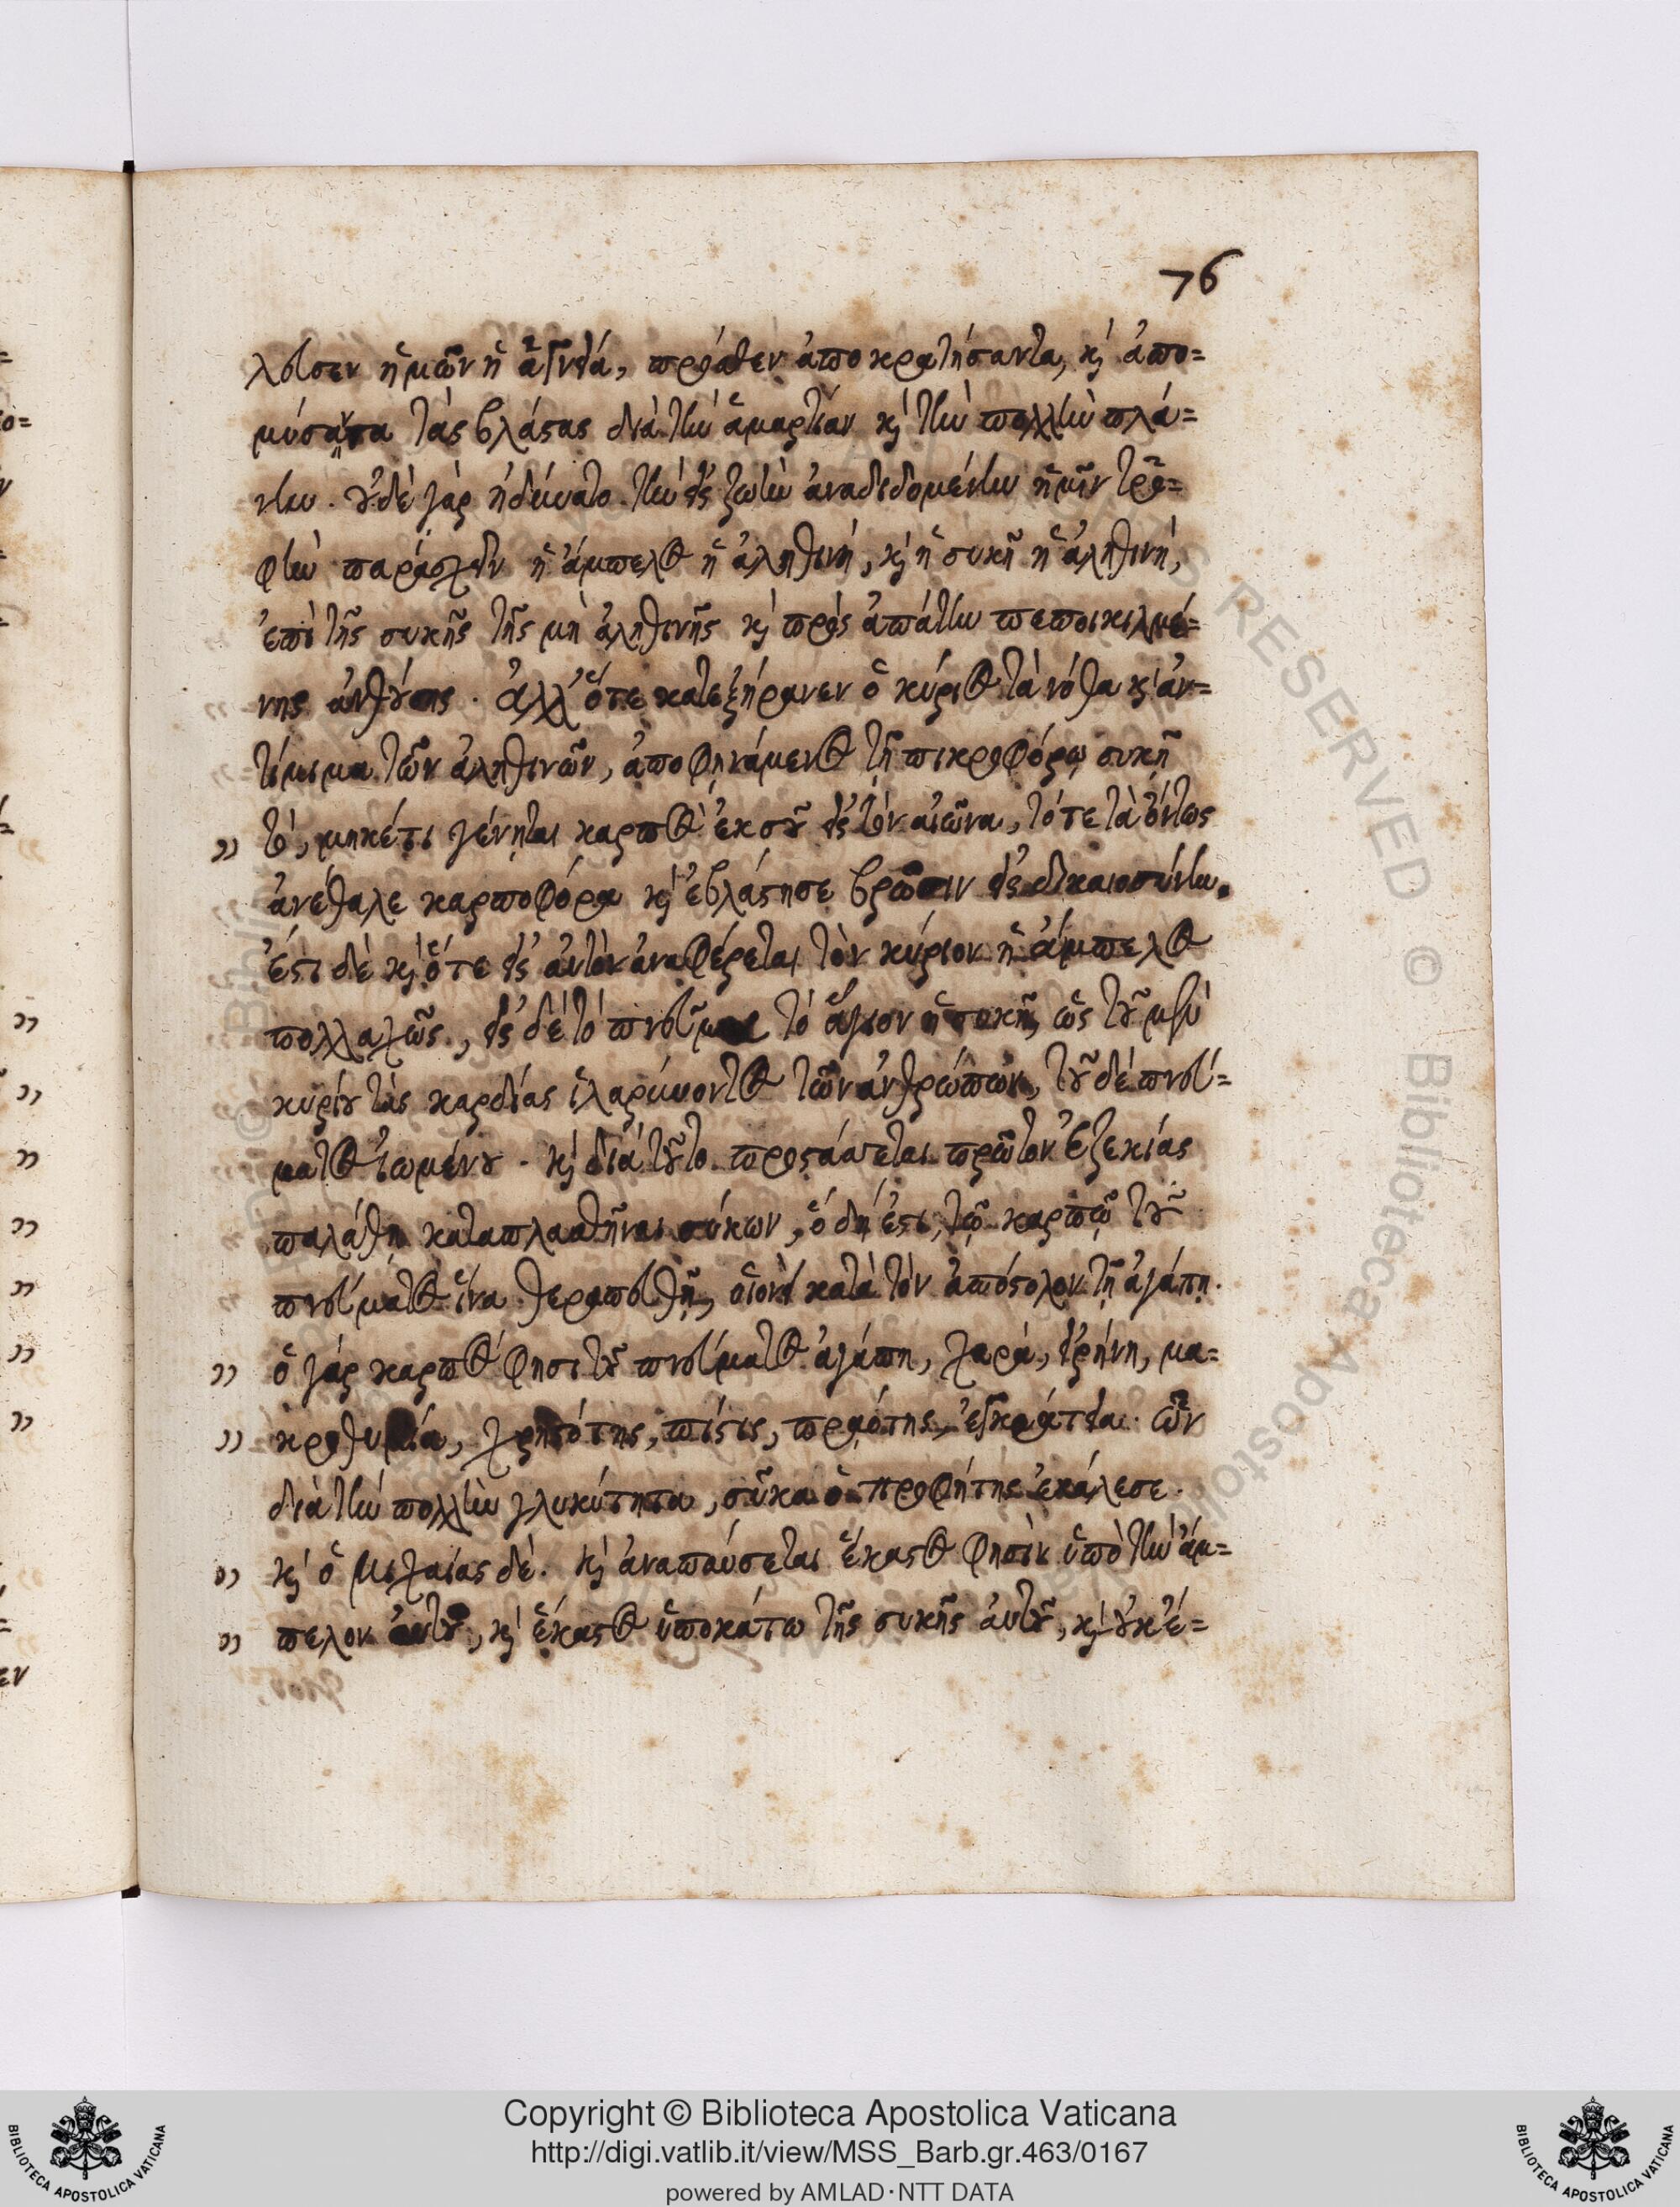 76
λευσεν ἡμῶν ἡ ἁγνεία, πρόσθεν ἀποκρατήσαντα, καὶ ἀπο=
μύσαντα τὰς βλάστας διὰ τὴν ἁμαρτίαν καὶ τὴν πολλὴν πλά=
νην. οὐδὲ γὰρ ἠδύνατο τὴν εἰς ζωὴν ἀναδιδομένην ἡμῖν τρο=
φὴν παράσχειν ἡ ἄμπελος ἡ ἀληθινή, καὶ ἡ συκῆ ἡ ἀληθινή,
ἐπὶ τῆς συκῆς τῆς μὴ ἀληθινῆς καὶ πρὸς ἀπάτην πεποικιλμέ=
νης ἀνθούσης. ἀλλ' ὅτε κατεξήρανεν ὁ κύριος τὰ νόθα καὶ ἀν=
τίμιμα τῶν ἀληθινῶν, ἀποφηνάμενος τῇ πικροφόρῳ συκῇ
” τὸ, μηκέτι γένηται καρπὸς ἐκ σοῦ εἰς τὸν αἰῶνα, τότε τὰ ὄντως
ἀνέθαλε καρποφόρα καὶ ἐβλάστησε βρῶσιν εἰς δικαιοσύνην.
ἔστι δὲ καὶ ὅτε εἰς αὐτὸν ἀναφέρεται τὸν κύριον ἡ ἄμπελος
πολλαχῶς, εἰς δὲ τὸ πνεῦμα τὸ ἅγιον ἡ συκῆ, ὡς τοῦ μὲν
κυρίου τὰς καρδίας ἱλαρύνοντος τῶν ἀνθρώπων, τοῦ δὲ πνεύ=
ματος ἰωμένου. καὶ διὰ τοῦτο προστάττεται πρῶτον Ἐζεκίας
παλάθῃ καταπλασθῆναι σύκων, ὁ δή ἐστι, τῷ καρπῷ τοῦ
πνεύματος ἵνα θεραπευθῇ, οἱονεὶ κατὰ τὸν ἀπόστολον τῇ ἀγάπῃ.
” ὁ γὰρ καρπὸς φησι τοῦ πνεύματος ἀγάπη, χαρά, εἰρήνη, μα=
” κροθυμία, χρηστότης, πίστις, πραότης, ἐγκράτεια. ὧν
διὰ τὴν πολλὴν γλυκύτητα, σῦκα ὁ προφήτης ἐκάλεσε.
” καὶ ὁ Μιχαίας δέ. καὶ ἀναπαύσεται ἕκαστος φησὶν ὑπὸ τὴν ἄμ=
” πελον αὐτοῦ, καὶ ἕκαστος ὑποκάτω τῆς συκῆς αὐτοῦ, καὶ οὐκ ἔ=
BIBLIOTECA APOSTOLICA VATICANA
Copyright © Biblioteca Apostolica Vaticana
http://digi.vatlib.it/view/MSS_Barb.gr.463/0167
powered by AMLAD·NTT DATA
BIBLIOTECA APOSTOLICA VATICANA